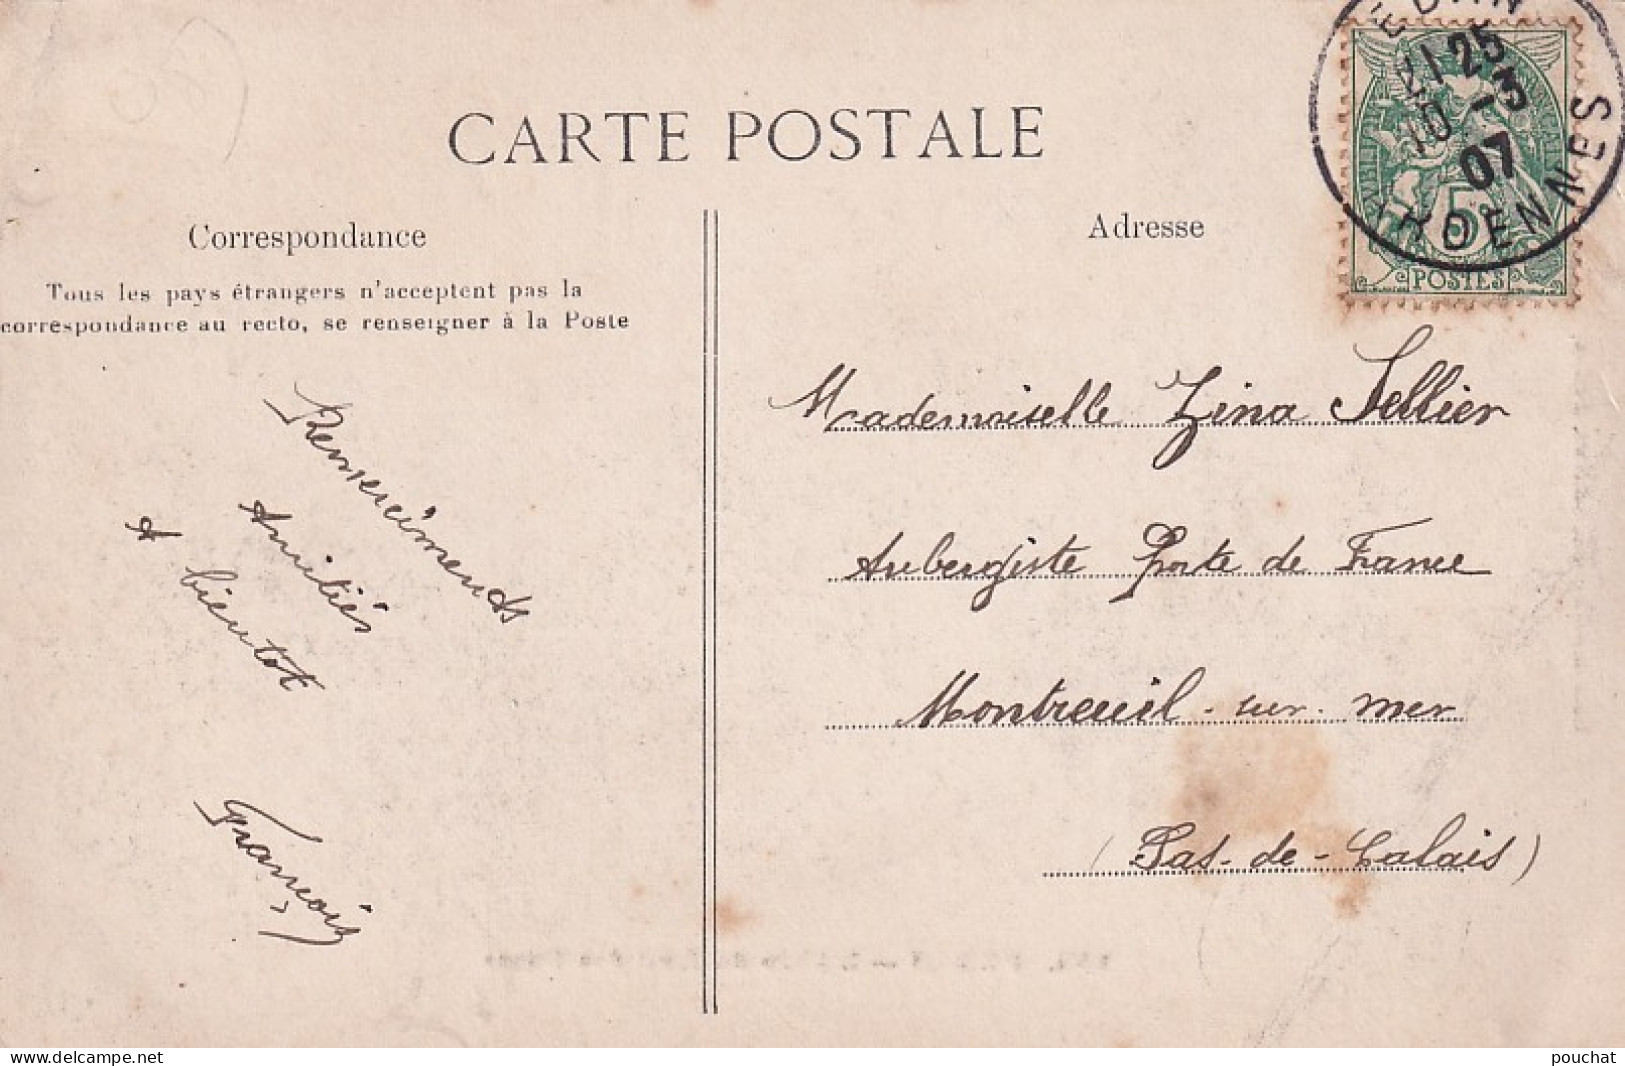 CARTE POSTALE
Correspondance
Tous les pays étrangers n'acceptent pas la
correspondance au recto, se renseigner à la Poste
Remerciments
Amitiés
A bientot
François
Adresse
21 25
10 -3
07
ARDENNES
5c
POSTES
Mademoiselle Zina Sellier
Aubergiste Porte de France
Montreuil-sur-mer
(Pas-de-Calais)
www.delcampe.net
pouchat